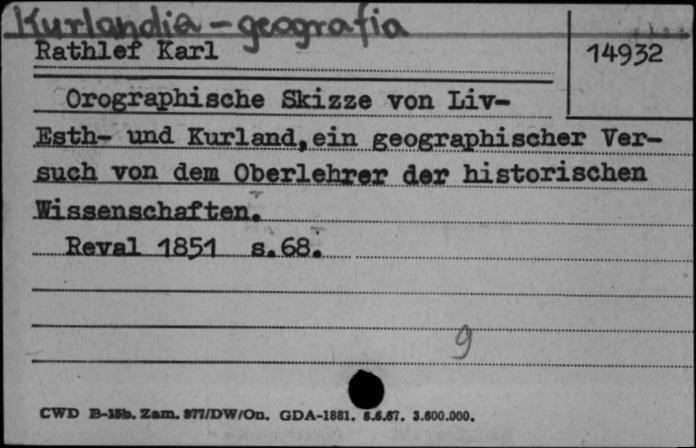 Kurlandia - geografia
Rathlef Karl
14932
Orographische Skizze von Liv-
Esth- und Kurland, ein geographischer Ver-
such von dem Oberlehrer der historischen
Wissenschaften.
Reval 1851 s.68.
9
CWD B-15b. Zam. 977/DW/On. GDA-1881. 5.6.67. 3.600.000.